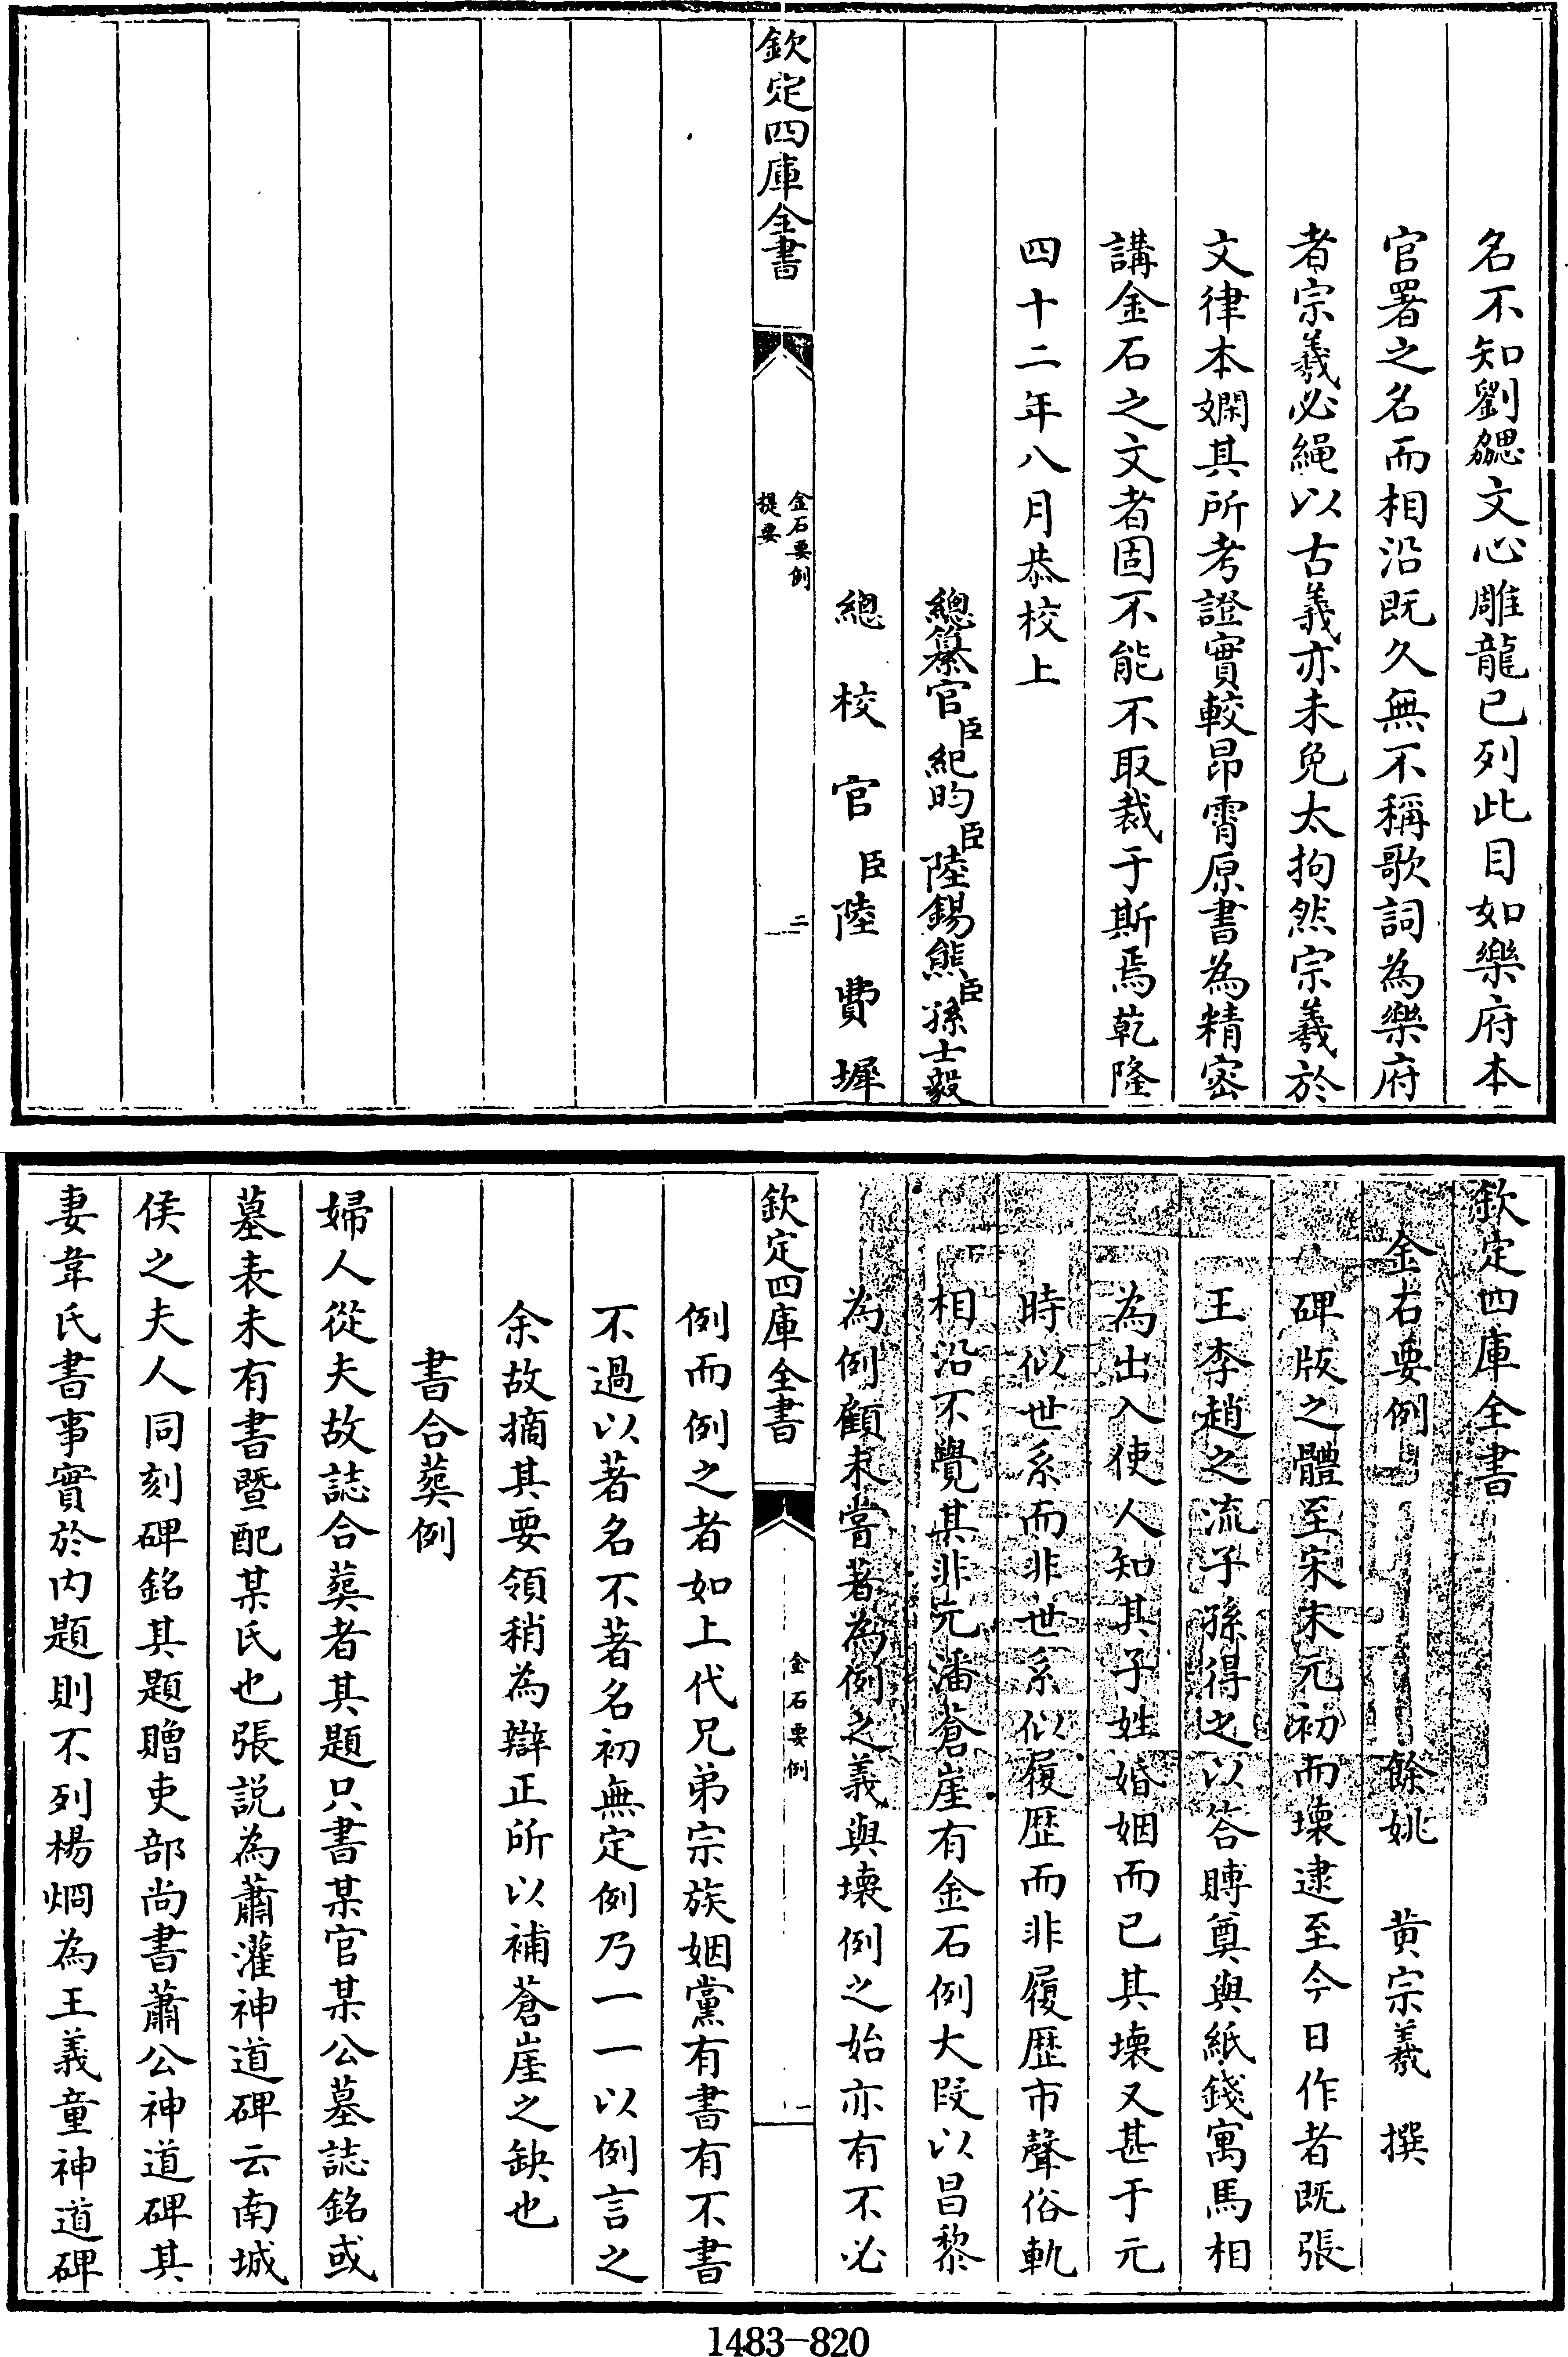 名不知劉勰文心雕龍已列此目如樂府本
官署之名而相沿既久無不稱歌詞為樂府
者宗羲必繩以古義亦未免太拘然宗羲於
文律本嫻其所考證實較昂霄原書為精密
講金石之文者固不能不取裁于斯焉乾隆
四十二年八月恭校上
總纂官臣紀昀臣陸錫熊臣孫士毅
總校官臣陸費墀
欽定四庫全書
金石要例
提要
二
欽定四庫全書
金石要例
餘姚 黄宗羲 撰
碑版之體至宋末元初而壞逮至今日作者既張
王李趙之流子孫得之以答賻奠與紙錢寓馬相
為出入使人知其子姓婚姻而已其壞又甚于元
時似世系而非世系似履歷而非履歷市聲俗軌
相沿不覺其非元潘蒼崖有金石例大段以昌黎
為例顧未嘗著為例之義與壞例之始亦有不必
欽定四庫全書
金石要例
一
例而例之者如上代兄弟宗族姻黨有書有不書
不過以著名不著名初無定例乃一一以例言之
余故摘其要領稍為辯正所以補蒼崖之缺也
書合葬例
婦人從夫故誌合葬者其題只書某官某公墓誌銘或
墓表未有書暨配某氏也張説為蕭灌神道碑云南城
侯之夫人同刻碑銘其題贈吏部尚書蕭公神道碑其
妻韋氏書事實於内題則不列楊烱為王義童神道碑
1483-820